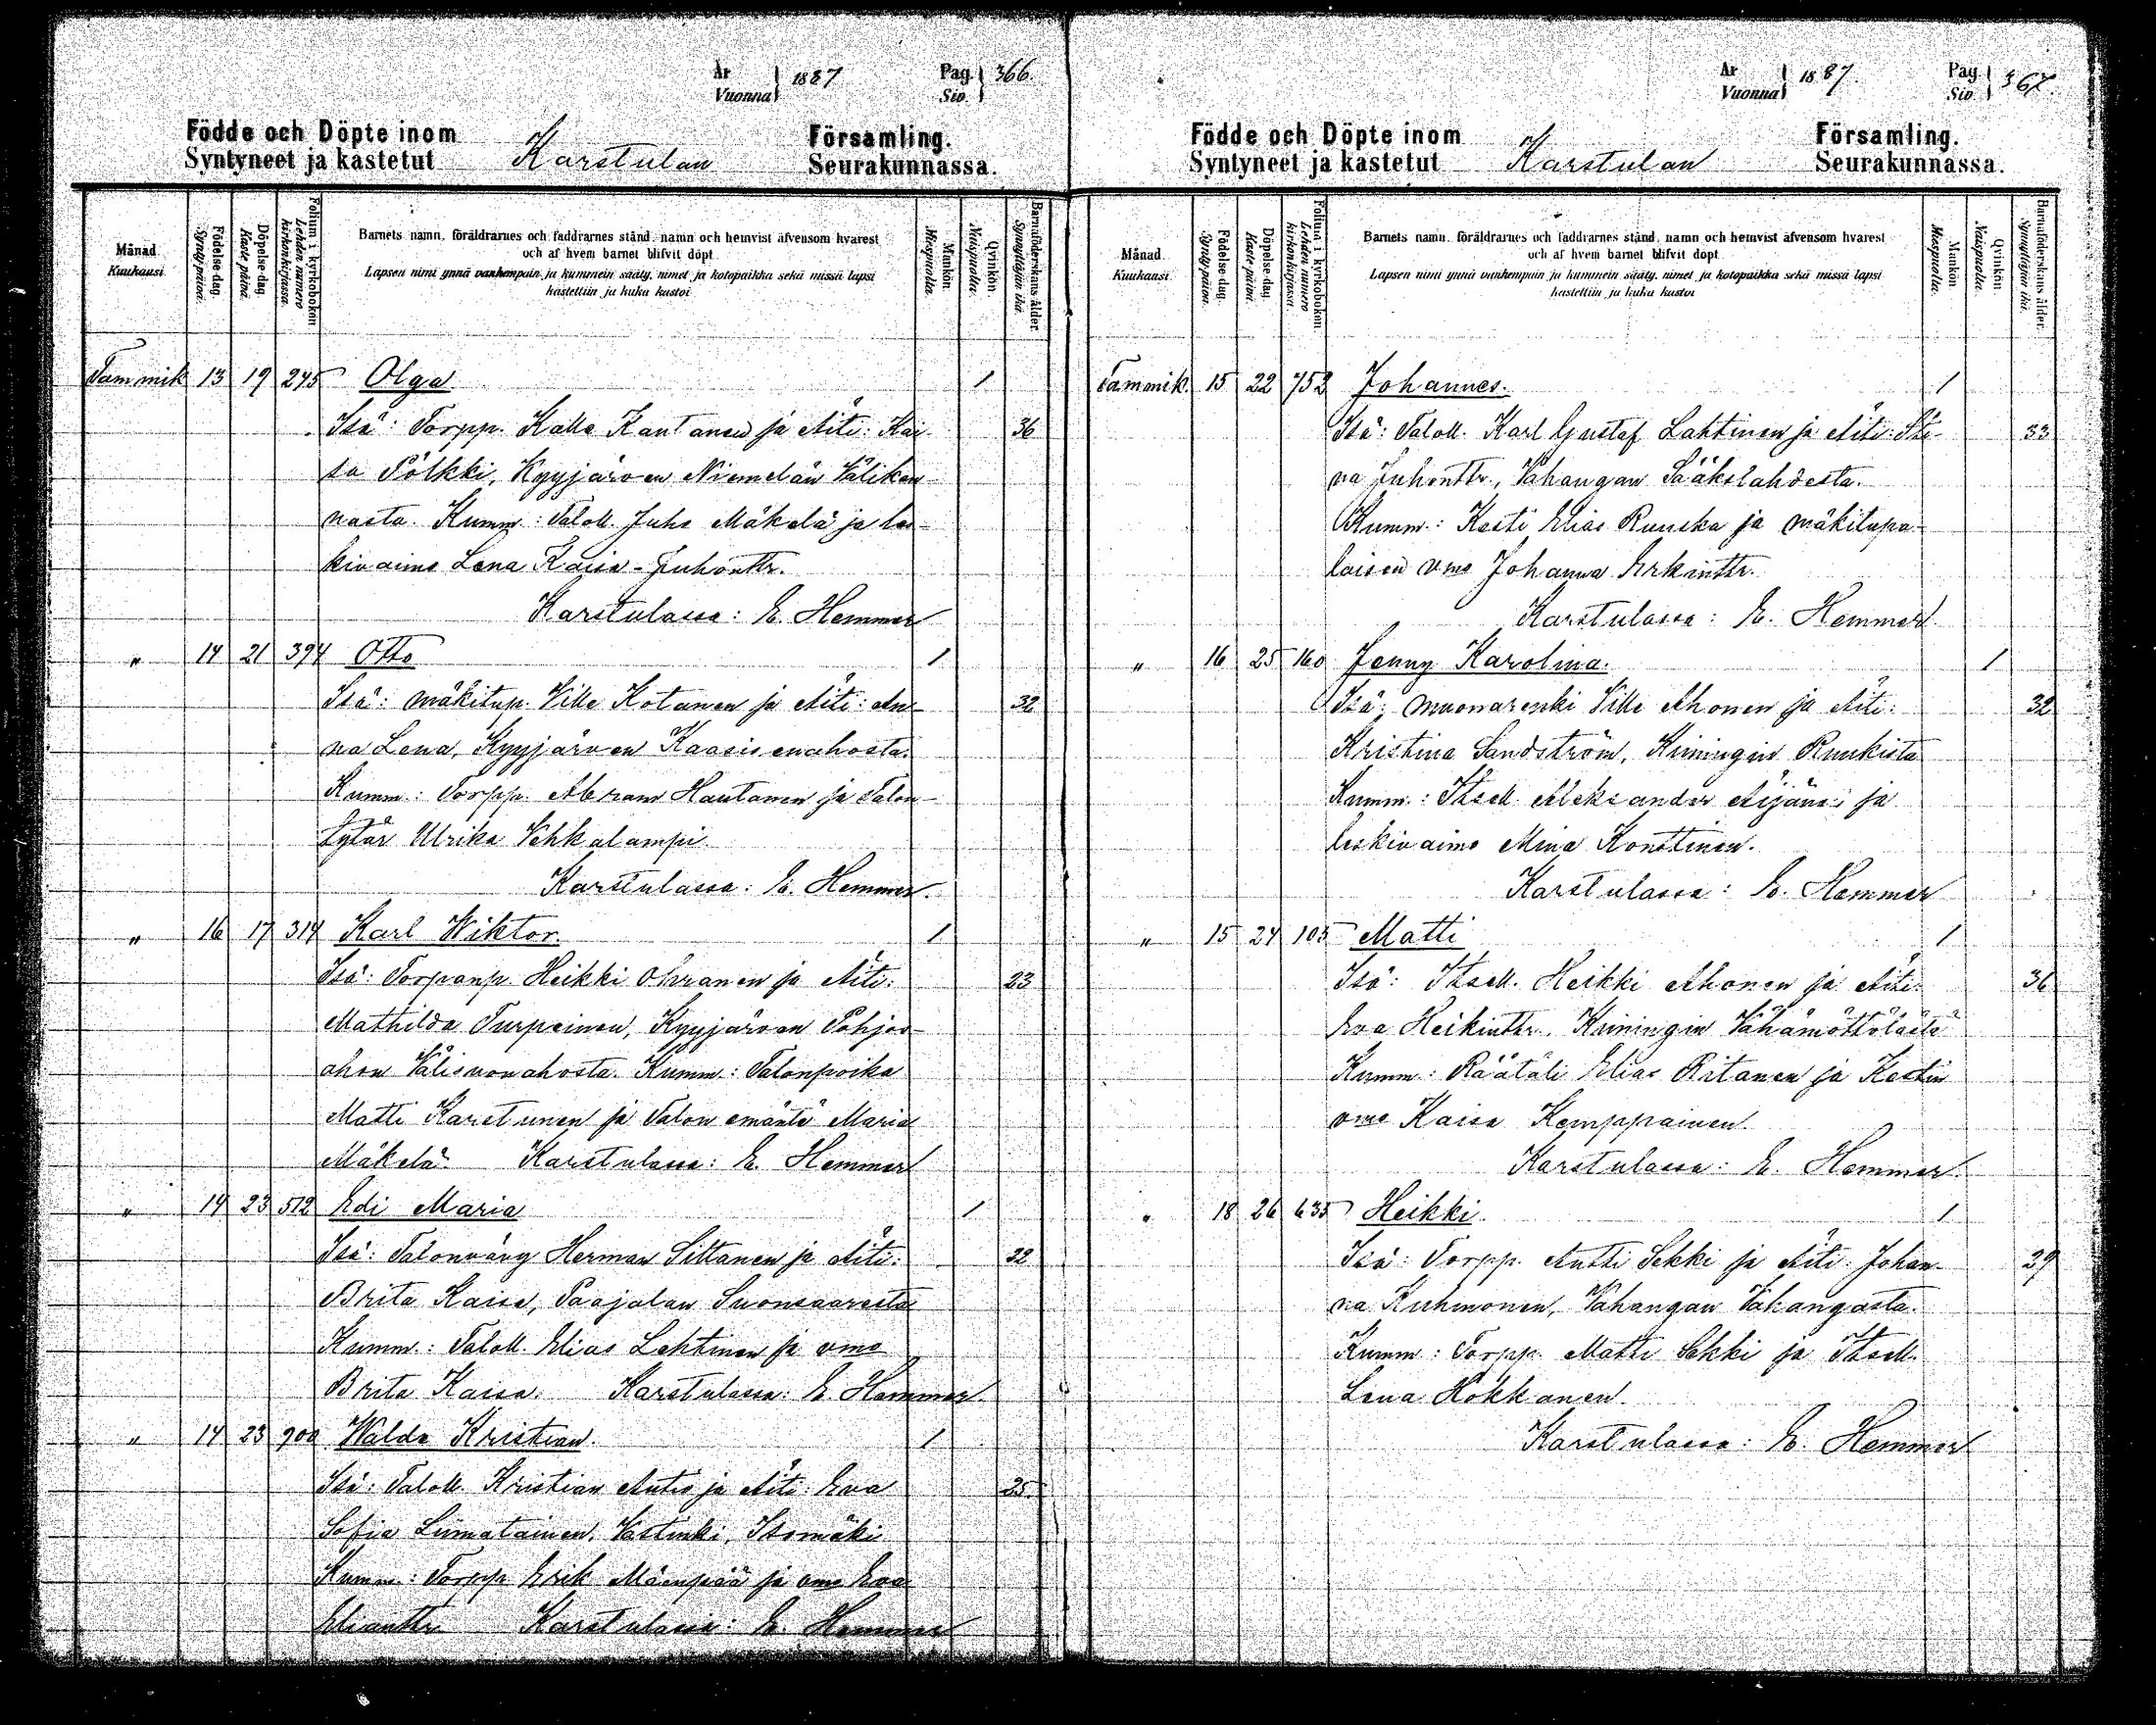 År Vuonna } 1887 Pag. Siv. } 366.
Födde och Döpte inom Karstulan Församling.
Syntyneet ja kastetut Seurakunnassa.
Månad Kuukausi.
Födelse-dag. Synty-päivä.
Döpelse-dag. Kaste-päivä.
Folium i kyrkoboken Lehden numero kirkonkirjassa.
Barnets namn, föräldrarnes och faddrarnes stånd, namn och hemvist äfvensom hvarest
och af hvem barnet blifvit döpt
Lapsen nimi ynnä vanhempain ja kummein sääty, nimet ja kotopaikka sekä missä lapsi
kastettiin ja kuka kastoi
Mankön. Miespuolia.
Qvinkön. Naispuolia.
Barnaföderskans ålder. Synnyttäjän ikä.
Tammik 13 19 245 Olga 1
Isä: Torpp. Kalle Kautanen ja Äiti: Kai- 36
sa Pölkki, Kyyjärven Niemelän Välikan-
nasta. Kumm: Taloll. Juho Mäkelä ja les-
kivaimo Lena Kaisa Juhontr.
Karstulassa: E. Hemmer
" 14 21 394 Otto 1
Isä: mäkitup. Ville Kotanen ja Äiti: An- 32
na Lena, Kyyjärven Kaasisenahosta.
Kumm: Torpp. Abram Hautanen ja Talon
tytär Ulrika Vehkalampi.
Karstulassa: E. Hemmer.
" 16 17 314 Karl Wiktor. 1
Isä: Torpanp. Heikki Ohranen ja Äiti: 23
Mathilda Turpeinen, Kyyjärven Pohjos-
ahon Välisuonahosta. Kumm: Talonpoika
Matti Karstunen ja Talon emäntä Maria
Mäkelä. Karstulassa: E. Hemmer
" 14 23 512 Edi Maria 1
Isä: Talonvävy Herman Sittanen ja Äiti: 22
Brita Kaisa, Paajalan Suonsaaresta
Kumm: Taloll. Elias Lehtinen ja vmo
Brita Kaisa. Karstulassa: E. Hemmer.
" 14 23 900 Waldo Kristian. 1
Isä: Taloll. Kristian Autio ja Äiti: Eva 25
Sofia Liimatainen, Vastinki, Isomäki
Kumm: Torpp Erik Mäenpää ja vmo Eva
Elianttr Karstulassa: E. Hemmer
År Vuonna } 1887. Pag. Siv. } 367.
Födde och Döpte inom Karstulan Församling.
Syntyneet ja kastetut Seurakunnassa.
Månad Kuukausi.
Födelse-dag. Synty-päivä.
Döpelse-dag. Kaste-päivä.
Folium i kyrkoboken Lehden numero kirkonkirjassa.
Barnets namn, föräldrarnes och faddrarnes stånd, namn och hemvist äfvensom hvarest
och af hvem barnet blifvit döpt
Lapsen nimi ynnä vanhempain ja kummein sääty, nimet ja kotopaikka sekä missä lapsi
kastettiin ja kuka kastoi
Mankön. Miespuolia.
Qvinkön. Naispuolia.
Barnaföderskans ålder. Synnyttäjän ikä.
Tammik. 15 22 752 Johannes. 1
Isä: Taloll. Karl Gustaf Lahtinen ja Äiti: Sti- 33
na Juhonttr., Vahangan Sääkslahdesta.
Kumm: Kesti Elias Ruuska ja mäkitupa-
laisen vmo Johanna Erkinttr.
Karstulassa: E. Hemmer.
" 16 25 160 Jenny Karolina. 1
Isä: muonarenki Ville Ahonen ja Äiti: 32
Kristina Sandström, Kiminginn Ruukista
Kumm: Itsell. Aleksander Äijänen ja
leskivaimo Mina Konttinen.
Karstulassa: E. Hemmer
" 15 24 105 Matti 1
Isä: Itsell. Heikki Ahonen ja Äiti: 36
Eva Heikinttr. Kimingin Vähämöttölästä
Kumm: Räätäli Elias Ritanen ja Kestin
vmo Kaisa Kemppainen.
Karstulassa: E. Hemmer.
" 18 26 635 Heikki. 1
Isä: Torpp. Antti Sekki ja Äiti: Johan- 29
na Kuhmonen, Vahangan Vahangasta.
Kumm: Torpp. Matti Sekki ja Itsell.
Lena Hokkanen.
Karstulassa: E. Hemmer